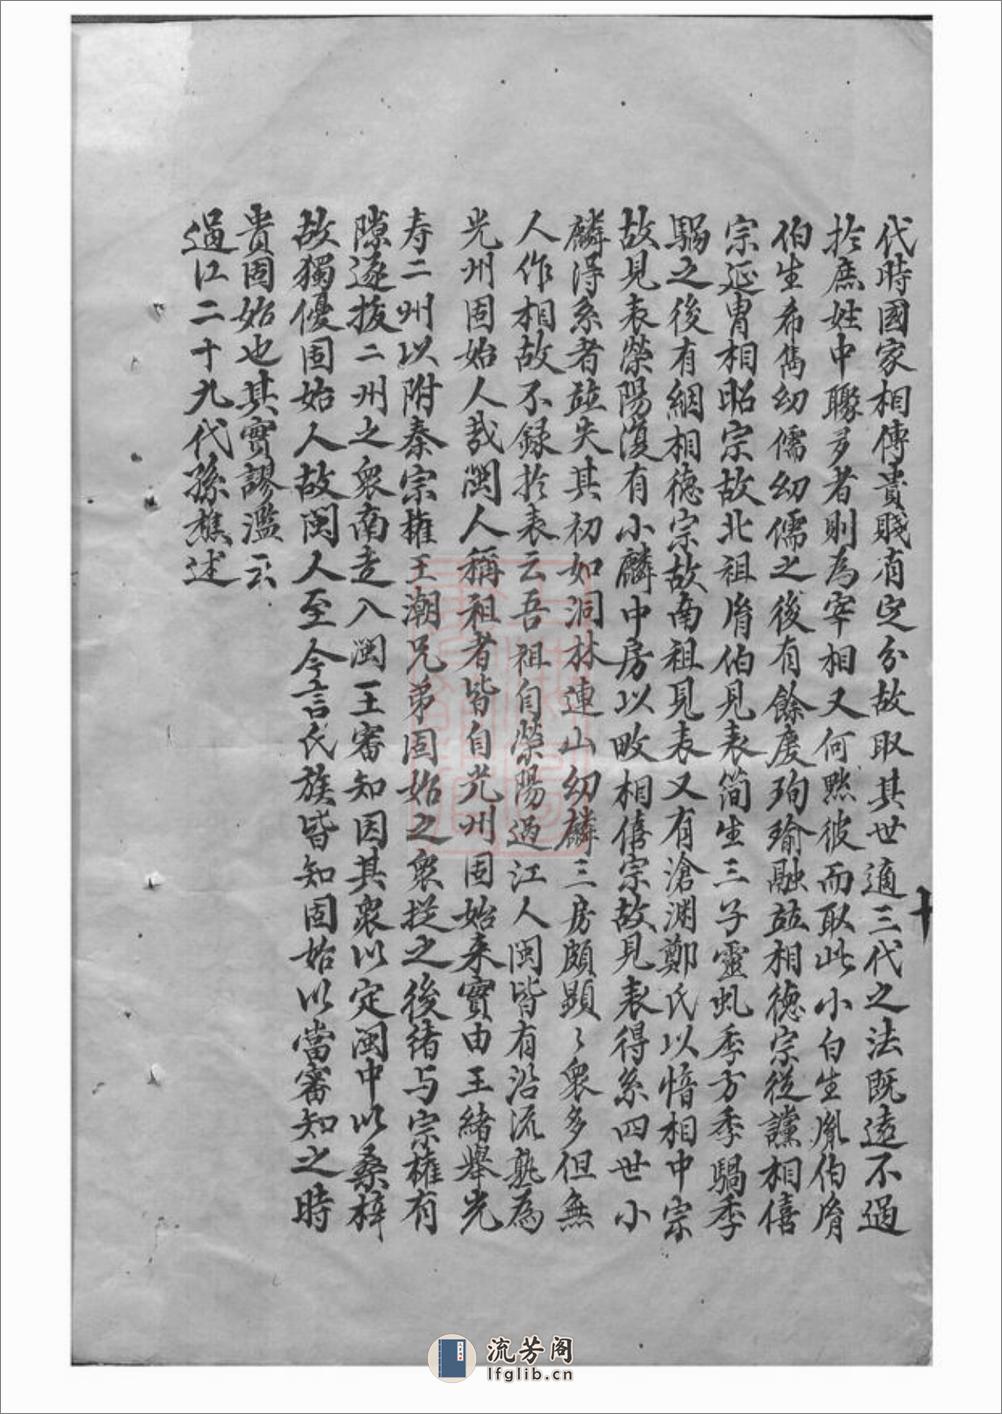 代時國家相傳貴賤有定分故取其世適三代之法既遠不過
扵庶姓中聯多者則為宰相又何黙彼而取此小白生胤伯胤
伯生希雋幼儒幼儒之後有餘慶珣瑜融並相德宗從讜相僖
宗延冑相昭宗故北祖胤伯見表簡生三子靈虬季方季騧季
騧之後有絪相德宗故南祖見表又有滄渊鄭氏以愔相中宗
故見表滎陽復有小麟中房以畋相僖宗故見表得系四世小
麟得系者並失其初如洞林連山幼麟三房頗顯々衆多但無
人作相故不録扵表云吾祖自滎陽過江人閩皆有沿流孰為
光州固始人哉閩人稱祖者皆自光州固始来實由王緒舉光
寿二州以附秦宗權王潮兄弟固始之衆從之後緒与宗權有
隙遂拔二州之衆南走入閩王審知因其衆以定閩中以桑梓
故獨優固始人故閩人至今言氏族皆知固始以當審知之時
貴固始也其實謬濫云
過江二十九代孫樵述
流芳阁
lfglib.cn